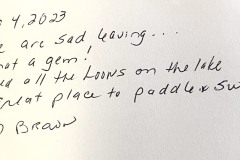 4, 2023
are sad leaving...
a gem!
all the loons on the lake
great place to paddle & sw
Brown